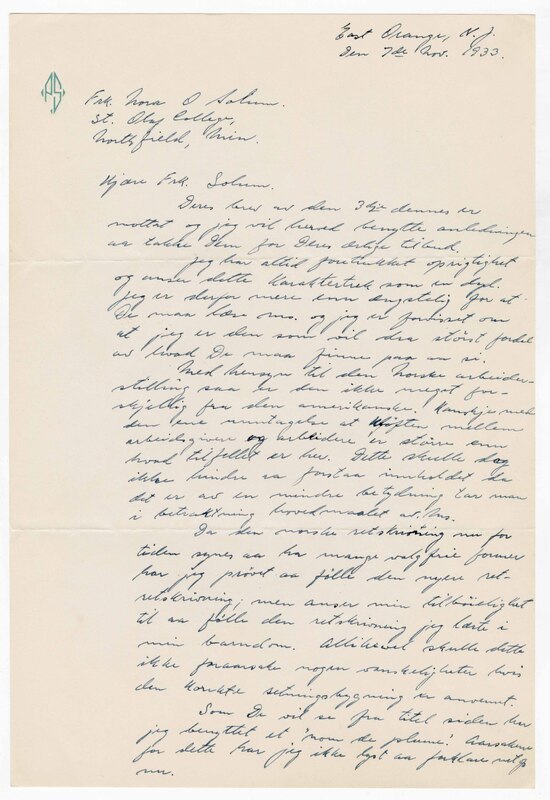 East Orange, N.J.
Den 7de Nov. 1933.
Frk. Nora O Solum.
St. Olaf College,
Northfield, Minn.
Kjære Frk. Solum.
Deres brev av den 3dje dennes er
mottat og jeg vil herved benytte anledningen
aa takke Dem for Deres ærlige tilbud.
Jeg har altid foretrukket oprigtighet
og anser dette karaktertrek som en dyd.
Jeg er derfor mere enn ængstelig for at
De maa læse ms. og jeg er forvisset om
at jeg er den som vil dra störst fordel
av hvad De maa finne paa aa si.
Med hensyn til den Norske arbeider-
stilling saa er den ikke meget for-
skjellig fra den amerikanske. Kanskje med
den ene undtagelse at kløften mellem
arbeidsgivere og arbeidere er större enn
hvad tilfellet er her. Dette skulde dog
ikke hindre aa forstaa innholdet da
det er av en mindre betydning tar man
i betraktning hovedmaalet av ms.
Da den norske retskrivning nu for
tiden synes aa ha mange valgfrie former
har jeg prövet aa fölle den nyere ret-
retskrivning, men anser min tilböielighet
til aa fölle den retskrivning jeg lærte i
min barndom. Allikevel skulde dette
ikke foraarsake nogen vanskeligheter hvis
den korrekte setningsbygning er anvent.
Som De vil se fra titel siden har
jeg benyttet et "nom de plume". Aarsaken
for dette har jeg ikke lyst aa forklare netop
nu.